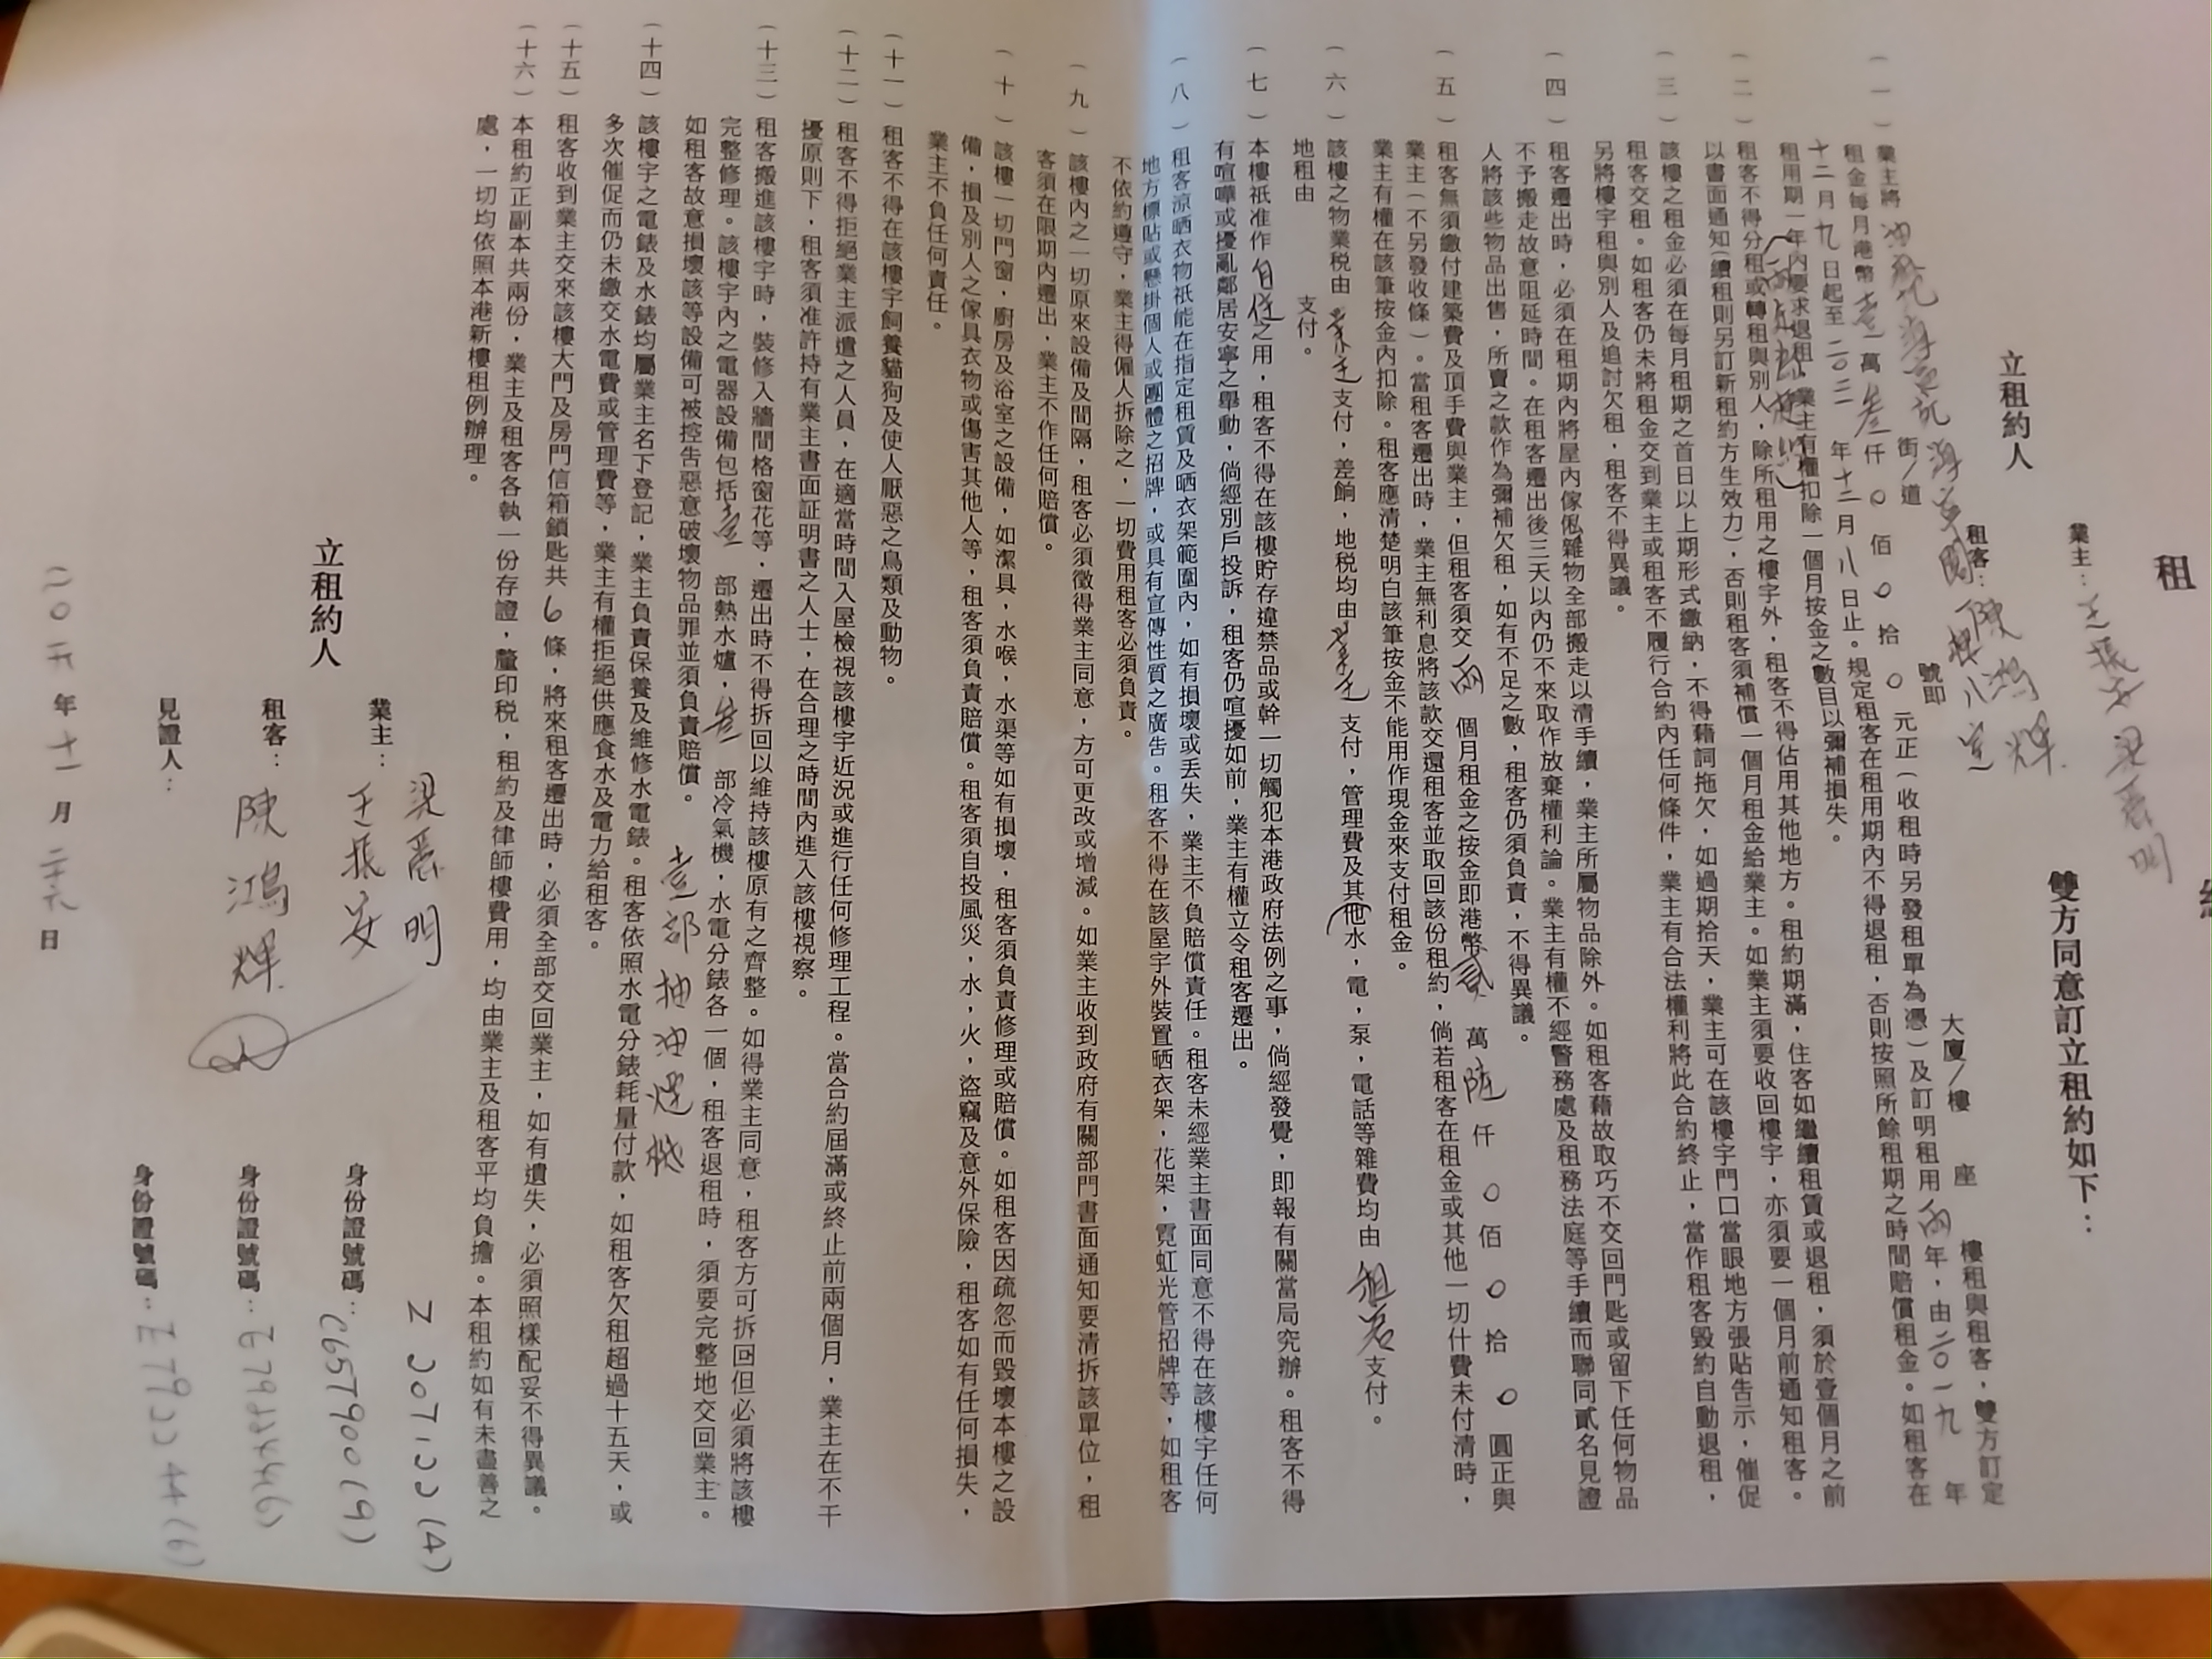 租
約
立租約人
業主：王振安 梁磊明
租客：陳鴻輝
雙方同意訂立租約如下：
（一）業主將 街／道 號即 大廈／樓 座 樓租與租客，雙方訂定
租金每月港幣壹萬叁仟0佰0拾0元正（收租時另發租單為憑）及訂明租用兩年，由二0一九年
十二月九日起至二0二一年十二月八日止。規定租客在租用期內不得退租，否則按照所餘租期之時間賠償租金。如租客在
租用期一年內要求退租，業主有權扣除一個月按金之數目以彌補損失。
（二）租客不得分租或轉租與別人，除所租用之樓宇外，租客不得佔用其他地方。租約期滿，住客如繼續租賃或退租，須於壹個月之前
以書面通知（續租則另訂新租約方生效力），否則租客須補償一個月租金給業主。如業主須要收回樓宇，亦須要一個月前通知租客。
（三）該樓之租金必須在每月租期之首日以上期形式繳納，不得藉詞拖欠，如過期拾天，業主可在該樓宇門口當眼地方張貼告示，催促
租客交租。如租客仍未將租金交到業主或租客不履行合約內任何條件，業主有合法權利將此合約終止，當作租客毀約自動退租，
另將樓宇租與別人及追討欠租，租客不得異議。
（四）租客遷出時，必須在租期內將屋內傢俬雜物全部搬走以清手續，業主所屬物品除外。如租客藉故取巧不交回門匙或留下任何物品
不予搬走故意阻延時間。在租客遷出後三天以內仍不來取作放棄權利論。業主有權不經警務處及租務法庭等手續而聯同貳名見證
人將該些物品出售，所賣之款作為彌補欠租，如有不足之數，租客仍須負責，不得異議。
（五）租客無須繳付建築費及頂手費與業主，但租客須交兩個月租金之按金即港幣貳萬陸仟0佰0拾0圓正與
業主（不另發收條）。當租客遷出時，業主無利息將該款交還租客並取回該份租約，倘若租客在租金或其他一切什費未付清時，
業主有權在該筆按金內扣除。租客應清楚明白該筆按金不能用作現金來支付租金。
（六）該樓之物業稅由業主支付，差餉，地稅均由業主支付，管理費及其他水，電，泵，電話等雜費均由租客支付。
地租由 支付。
（七）本樓祇准作自住之用，租客不得在該樓貯存違禁品或幹一切觸犯本港政府法例之事，倘經發覺，即報有關當局究辦。租客不得
有喧嘩或擾亂鄰居安寧之舉動，倘經別戶投訴，租客仍喧擾如前，業主有權立令租客遷出。
（八）租客涼晒衣物祇能在指定租賃及晒衣架範圍內，如有損壞或丟失，業主不負賠償責任。租客未經業主書面同意不得在該樓宇任何
地方標貼或懸掛個人或團體之招牌，或具有宣傳性質之廣告。租客不得在該屋宇外裝置晒衣架，花架，霓虹光管招牌等，如租客
不依約遵守，業主得僱人拆除之，一切費用租客必須負責。
（九）該樓內之一切原來設備及間隔，租客必須徵得業主同意，方可更改或增減。如業主收到政府有關部門書面通知要清拆該單位，租
客須在限期內遷出，業主不作任何賠償。
（十）該樓一切門窗，廚房及浴室之設備，如潔具，水喉，水渠等如有損壞，租客須負責修理或賠償。如租客因疏忽而毀壞本樓之設
備，損及別人之傢具衣物或傷害其他人等，租客須負責賠償。租客須自投風災，水，火，盜竊及意外保險，租客如有任何損失，
業主不負任何責任。
（十一）租客不得在該樓宇飼養貓狗及使人厭惡之鳥類及動物。
（十二）租客不得拒絕業主派遣之人員，在適當時間入屋檢視該樓宇近況或進行任何修理工程。當合約屆滿或終止前兩個月，業主在不干
擾原則下，租客須准許持有業主書面証明書之人士，在合理之時間內進入該樓視察。
（十三）租客搬進該樓宇時，裝修入牆間格窗花等，遷出時不得拆回以維持該樓原有之齊整。如得業主同意，租客方可拆回但必須將該樓
完整修理。該樓宇內之電器設備包括壹部熱水爐，叁部冷氣機，水電分錶各一個，租客退租時，須要完整地交回業主。
如租客故意損壞該等設備可被控告惡意破壞物品罪並須負責賠償。 壹部抽油煙機
（十四）該樓宇之電錶及水錶均屬業主名下登記，業主負責保養及維修水電錶。租客依照水電分錶耗量付款，如租客欠租超過十五天，或
多次催促而仍未繳交水電費或管理費等，業主有權拒絕供應食水及電力給租客。
（十五）租客收到業主交來該樓大門及房門信箱鎖匙共6條，將來租客遷出時，必須全部交回業主，如有遺失，必須照樣配妥不得異議。
（十六）本租約正副本共兩份，業主及租客各執一份存證，釐印稅，租約及律師樓費用，均由業主及租客平均負擔。本租約如有未盡善之
處，一切均依照本港新樓租例辦理。
立租約人
梁磊明
業主：王振安 身份證號碼：C657900(9)
租客：陳鴻輝 身份證號碼：
見證人： 身份證號碼：
年十一月 日